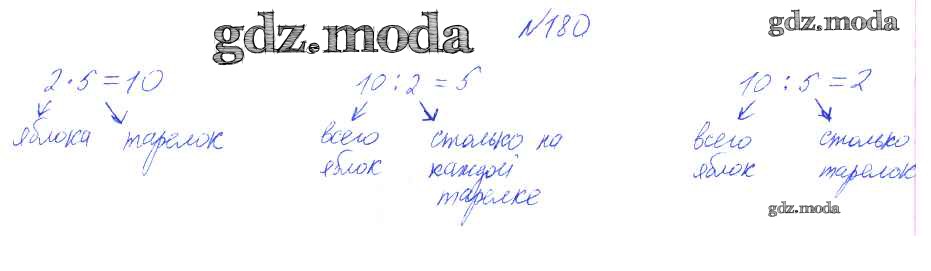 gdz.moda №180 gdz.moda
2·5=10 10:2=5 10:5=2
яблока тарелок всего столько на всего столько
яблок каждой яблок тарелок
тарелке
gdz.moda